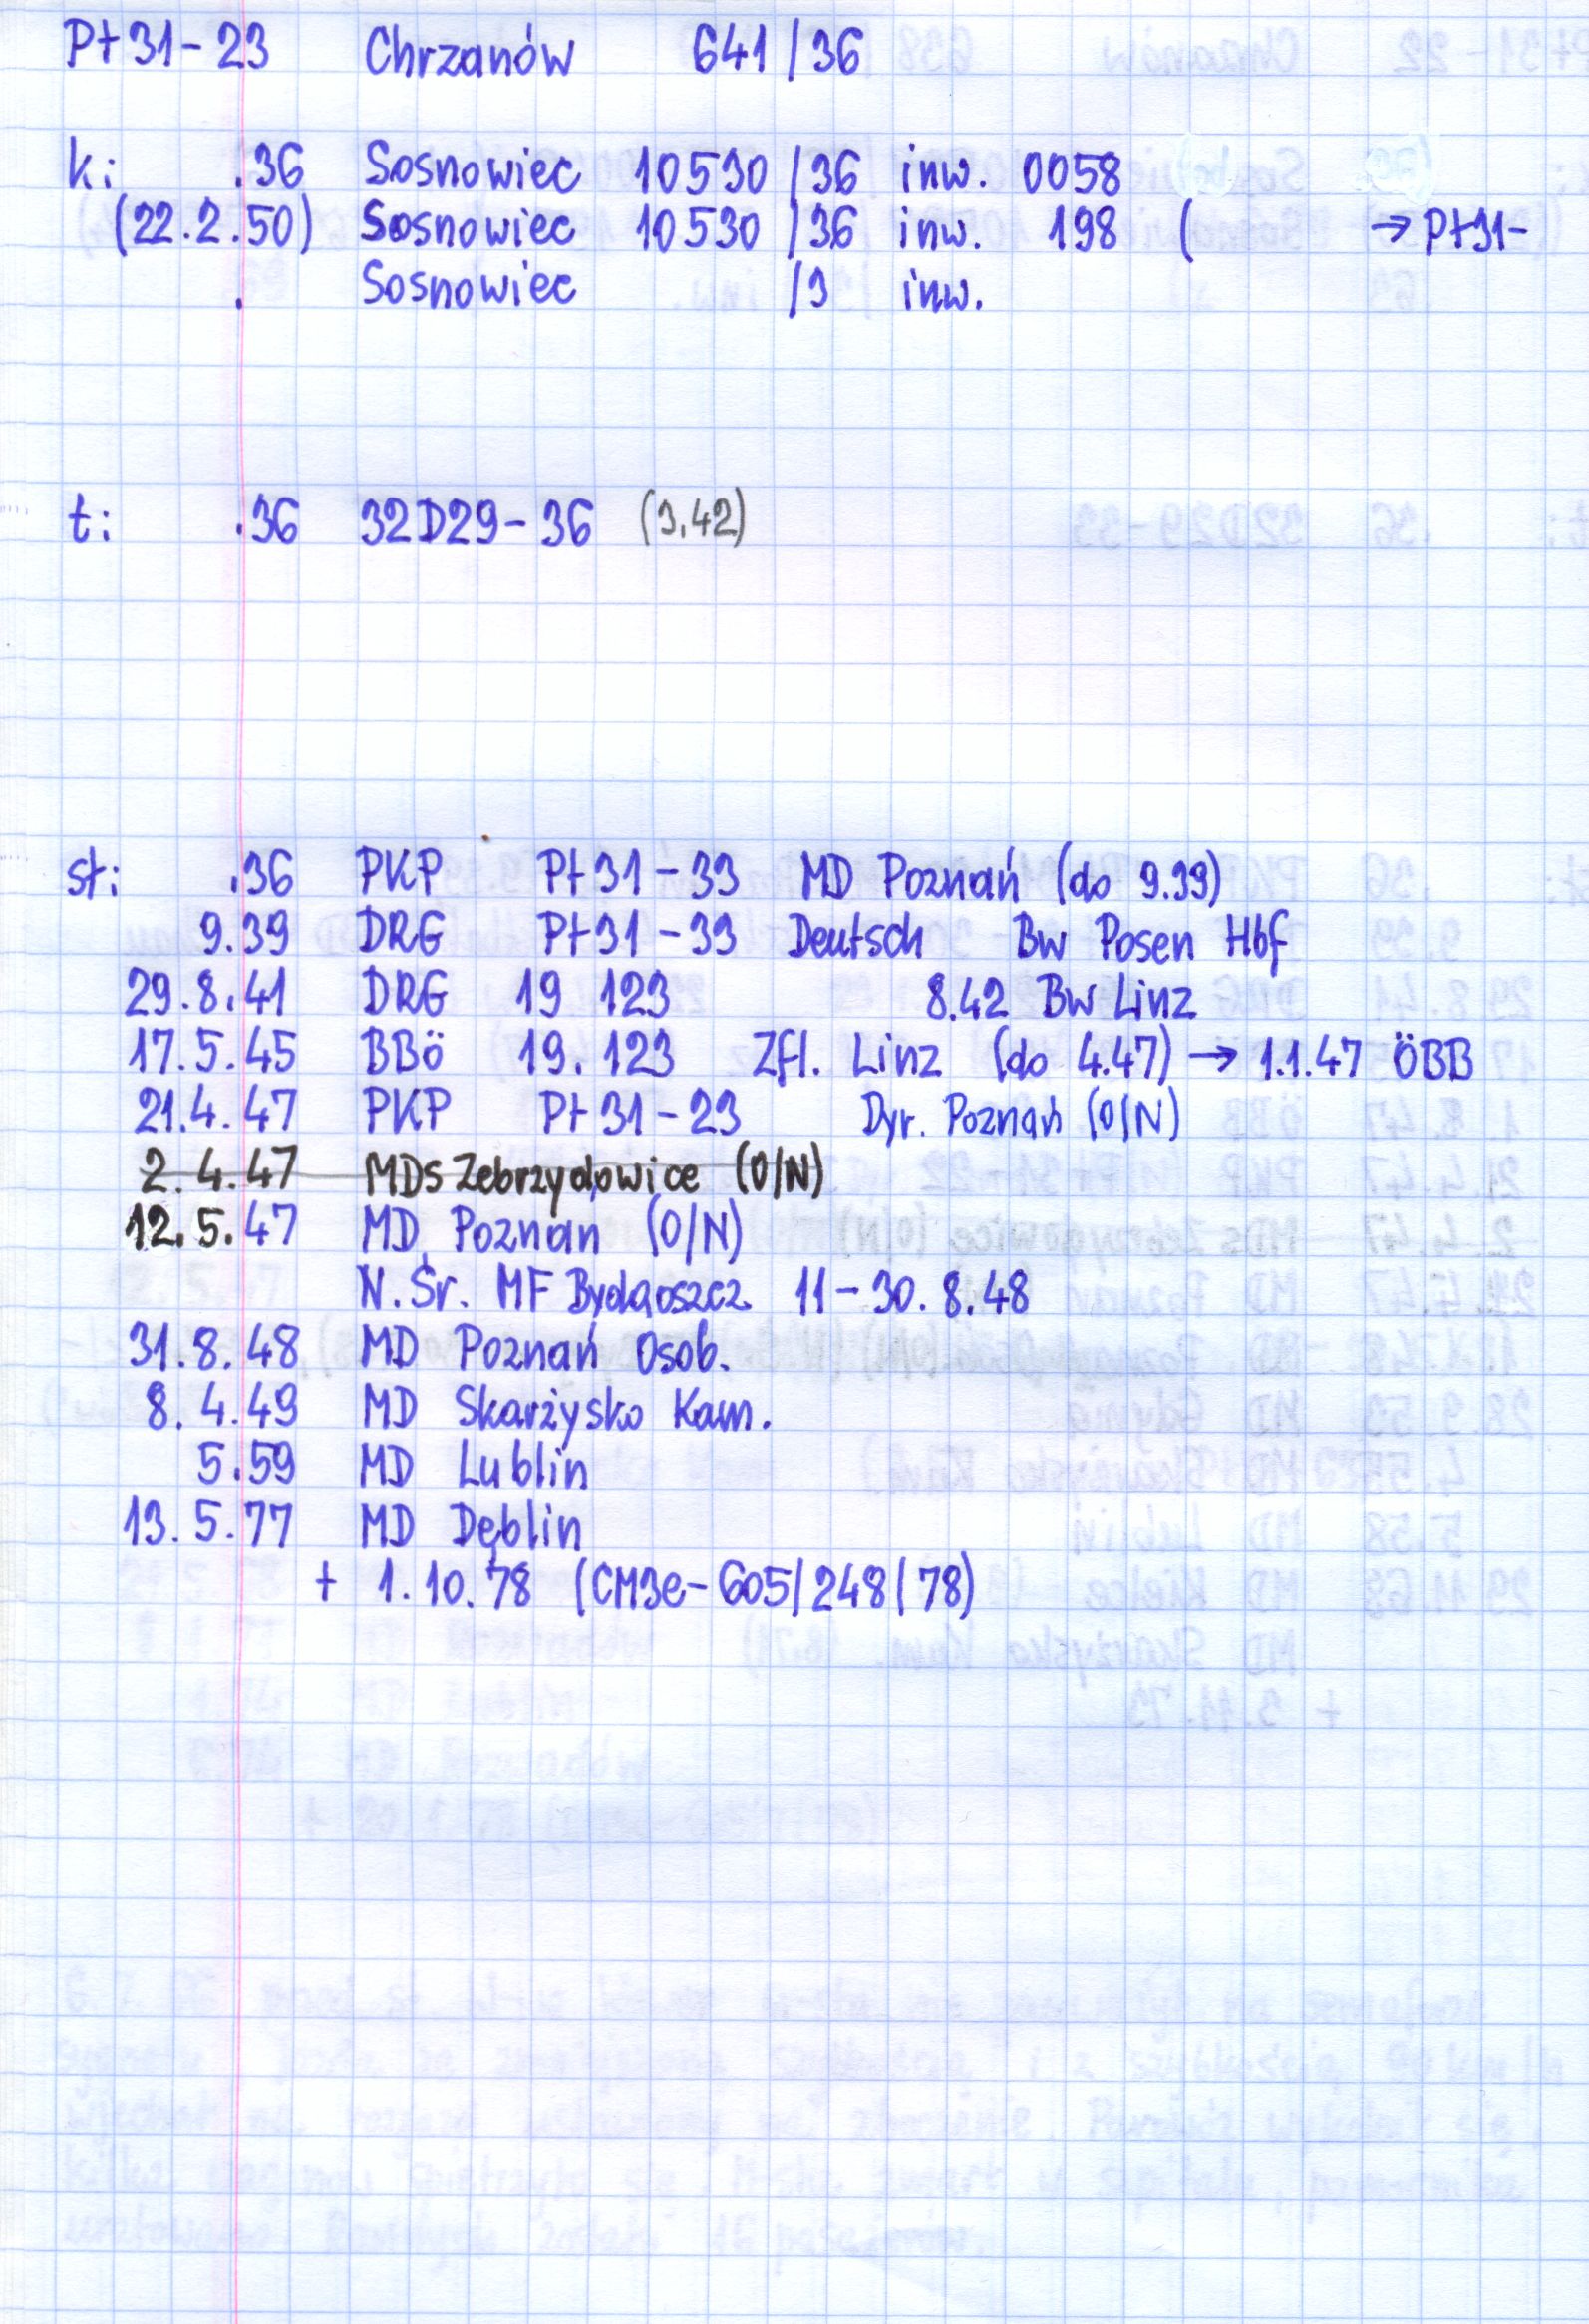 Pt31-23 Chrzanów 641/36
k: .36 Sosnowiec 10530/36 inw. 0058
(22.2.50) Sosnowiec 10530/36 inw. 198 ( → Pt31-
. Sosnowiec /3 inw.
t: .36 32D29-36 (3,42)
st: .36 PKP Pt31-33 MD Poznań (do 9.39)
9.39 DRG Pt31-33 Deutsch Bw Posen Hbf
29.8.41 DRG 19 123 8.42 Bw Linz
17.5.45 BBö 19.123 Zfl. Linz (do 4.47) → 1.1.47 ÖBB
21.4.47 PKP Pt31-23 Dyr. Poznań (O/N)
2.4.47 MDs Zebrzydowice (O/N)
12.5.47 MD Poznań (O/N)
N.Śr. MF Bydgoszcz 11-30.8.48
31.8.48 MD Poznań Osob.
8.4.49 MD Skarżysko Kam.
5.59 MD Lublin
13.5.77 MD Dęblin
+ 1.10.78 (CM3e-605/248/78)